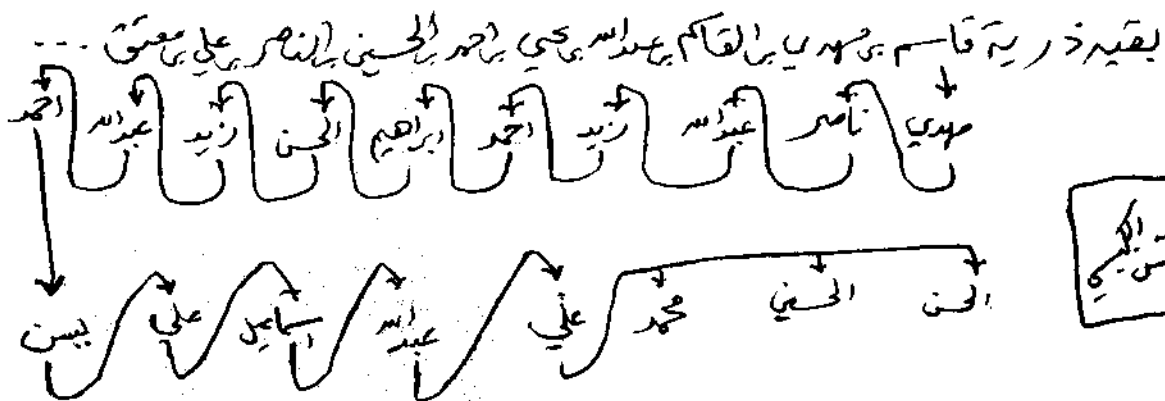 بقيه ذرية قاسم بن مهدي بن القاسم بن عبدالله بن يحيى بن احمد بن الحسين بن الناصر بن علي بن معتق ...
مهدي ناصر عبدالله زيد احمد ابراهيم الحسن زيد عبدالله احمد
الحسن الحسين محمد علي عبدالله اسماعيل علي يسن